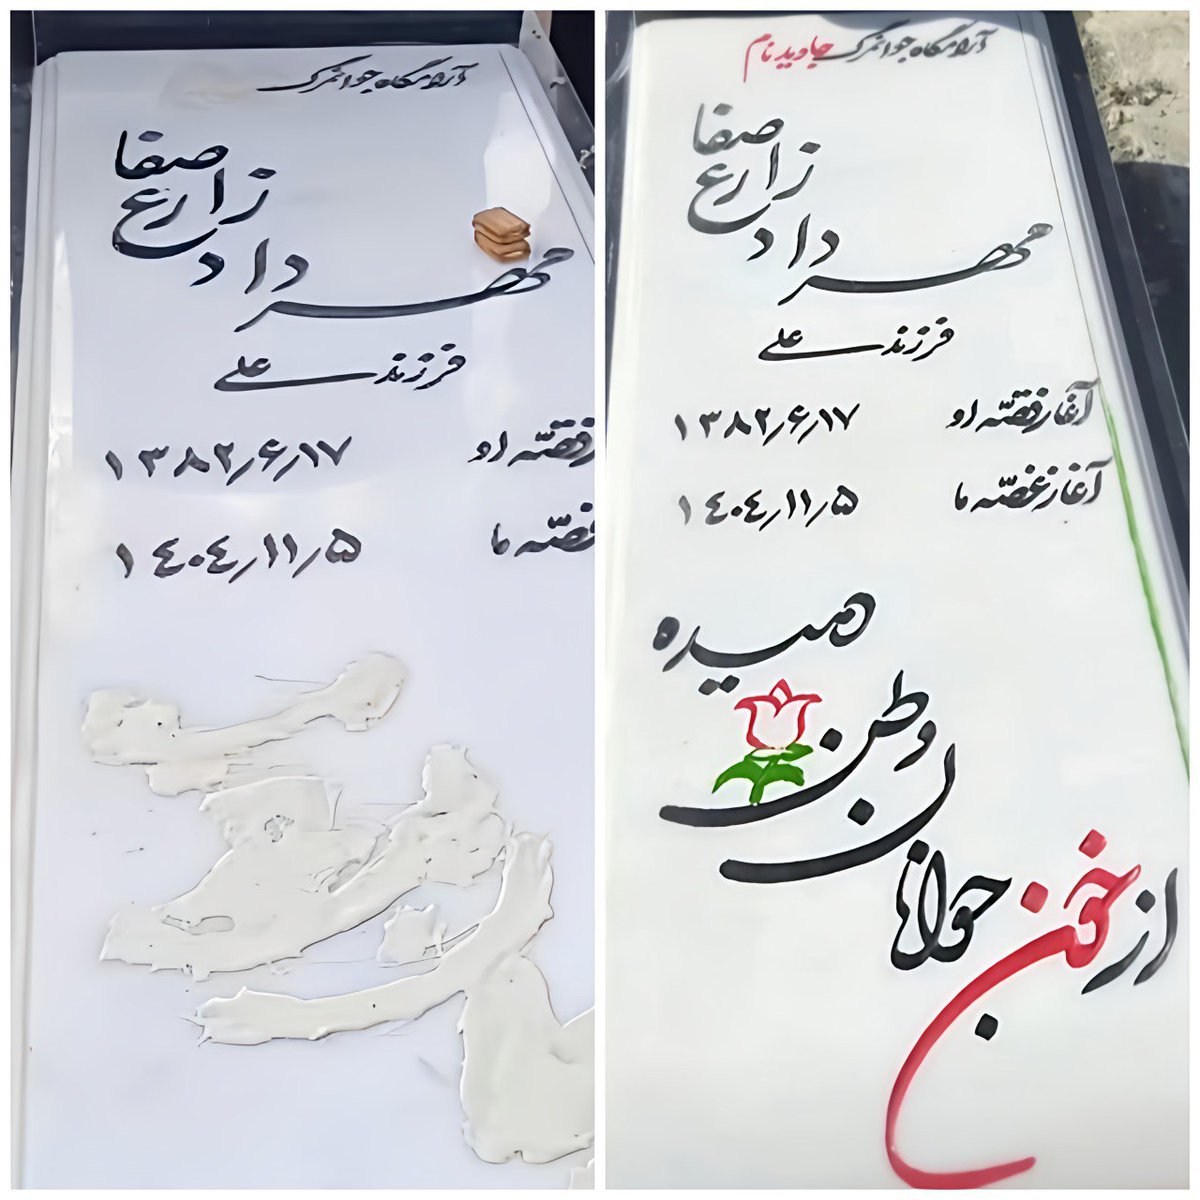 آرامگاه جوانمرگ
مهرداد زارع صفا
فرزند علی
قصّه او ۱۳۸۲٫۶٫۱۷
غصّه ما ۱۴۰۴٫۱۱٫۵
آرامگاه جوانمرگ جاویدنام
مهرداد زارع صفا
فرزند علی
آغاز قصّه او ۱۳۸۲٫۶٫۱۷
آغاز غصّه ما ۱۴۰۴٫۱۱٫۵
از خون جوانان وطن دمیده